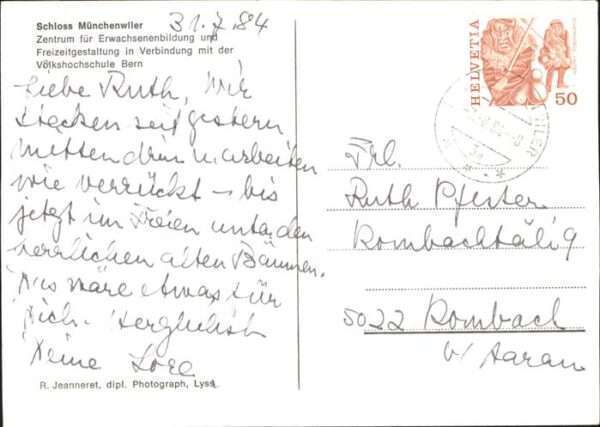 Schloss Münchenwiler
Zentrum für Erwachsenenbildung und
Freizeitgestaltung in Verbindung mit der
Volkshochschule Bern
31.7.84
Liebe Ruth, Wir
stecken seit gestern
mitten drin u. arbeiten
wie verrückt – bis
jetzt im Freien unter den
herrlichen alten Bäumen.
Das wäre etwas für
Dich. Herzlichst
Deine Lore
R. Jeanneret, dipl. Photograph, Lyss
HELVETIA
50
Frl.
Ruth Pfister
Rombachtäli 9
5022 Rombach
b/ Aarau